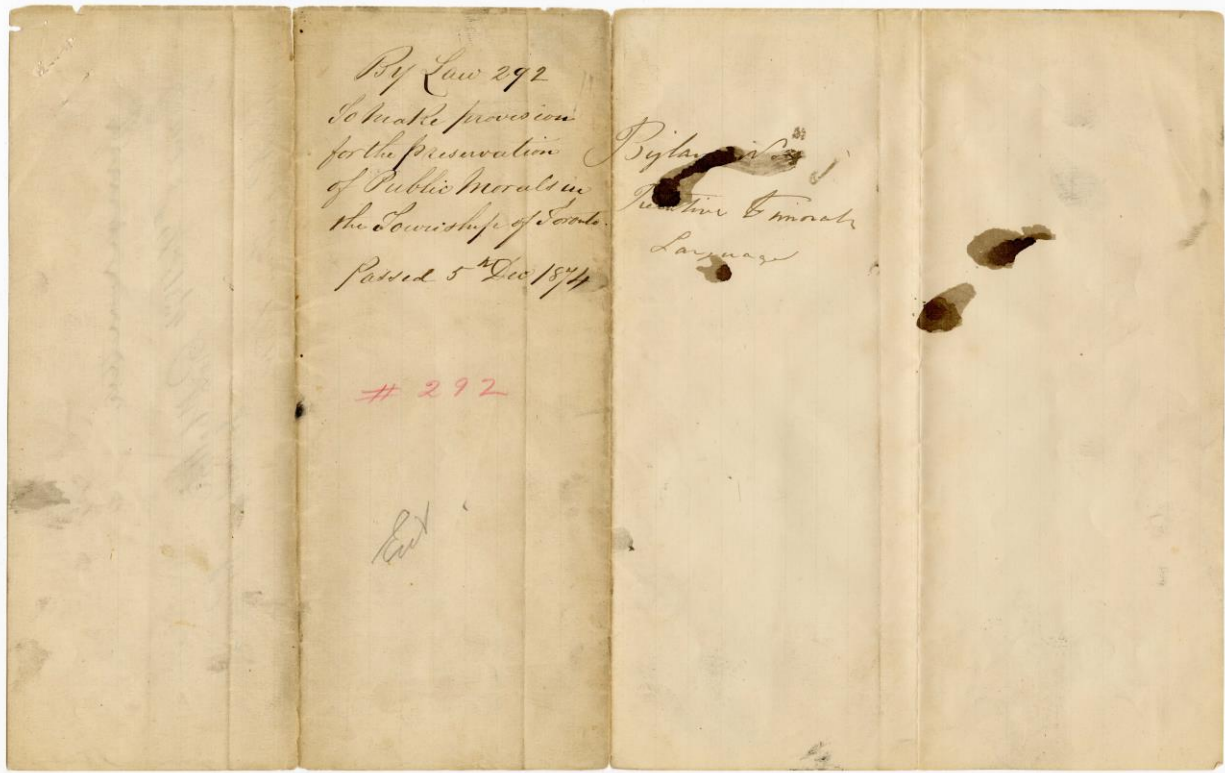 By Law 292
To make provision
for the preservation
of Public Morals in
the Township of Toronto.
Passed 5th Dec 1874
# 292
Ent
Bylaw
& imorale
Language